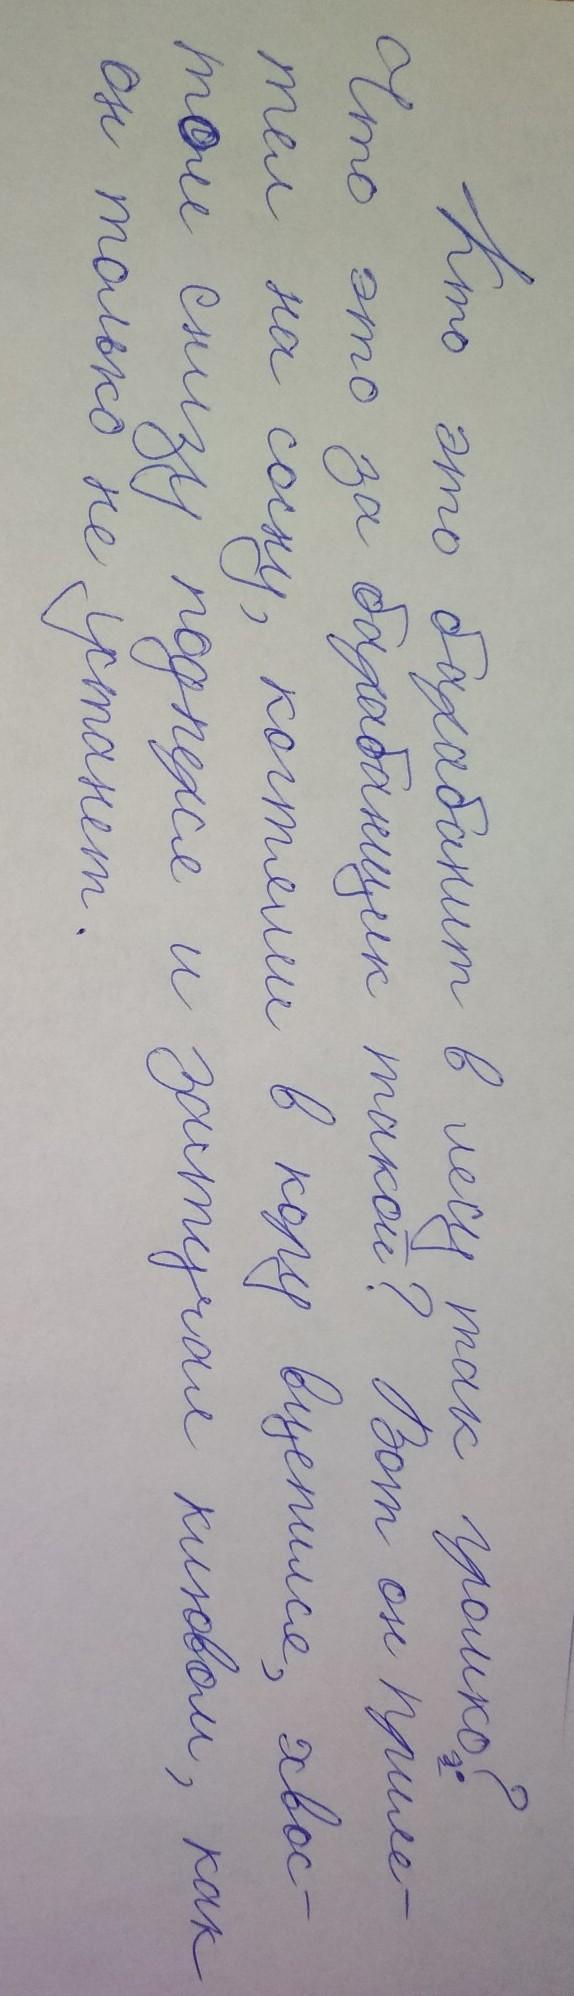 Кто это барабанит в лесу так громко?
Что это за барабанщик такой? Вот он приле-
тел на сосну, когтями в кору вцепился, хвос-
том снизу подпёрся и застучал клювом, как
он только не устанет.